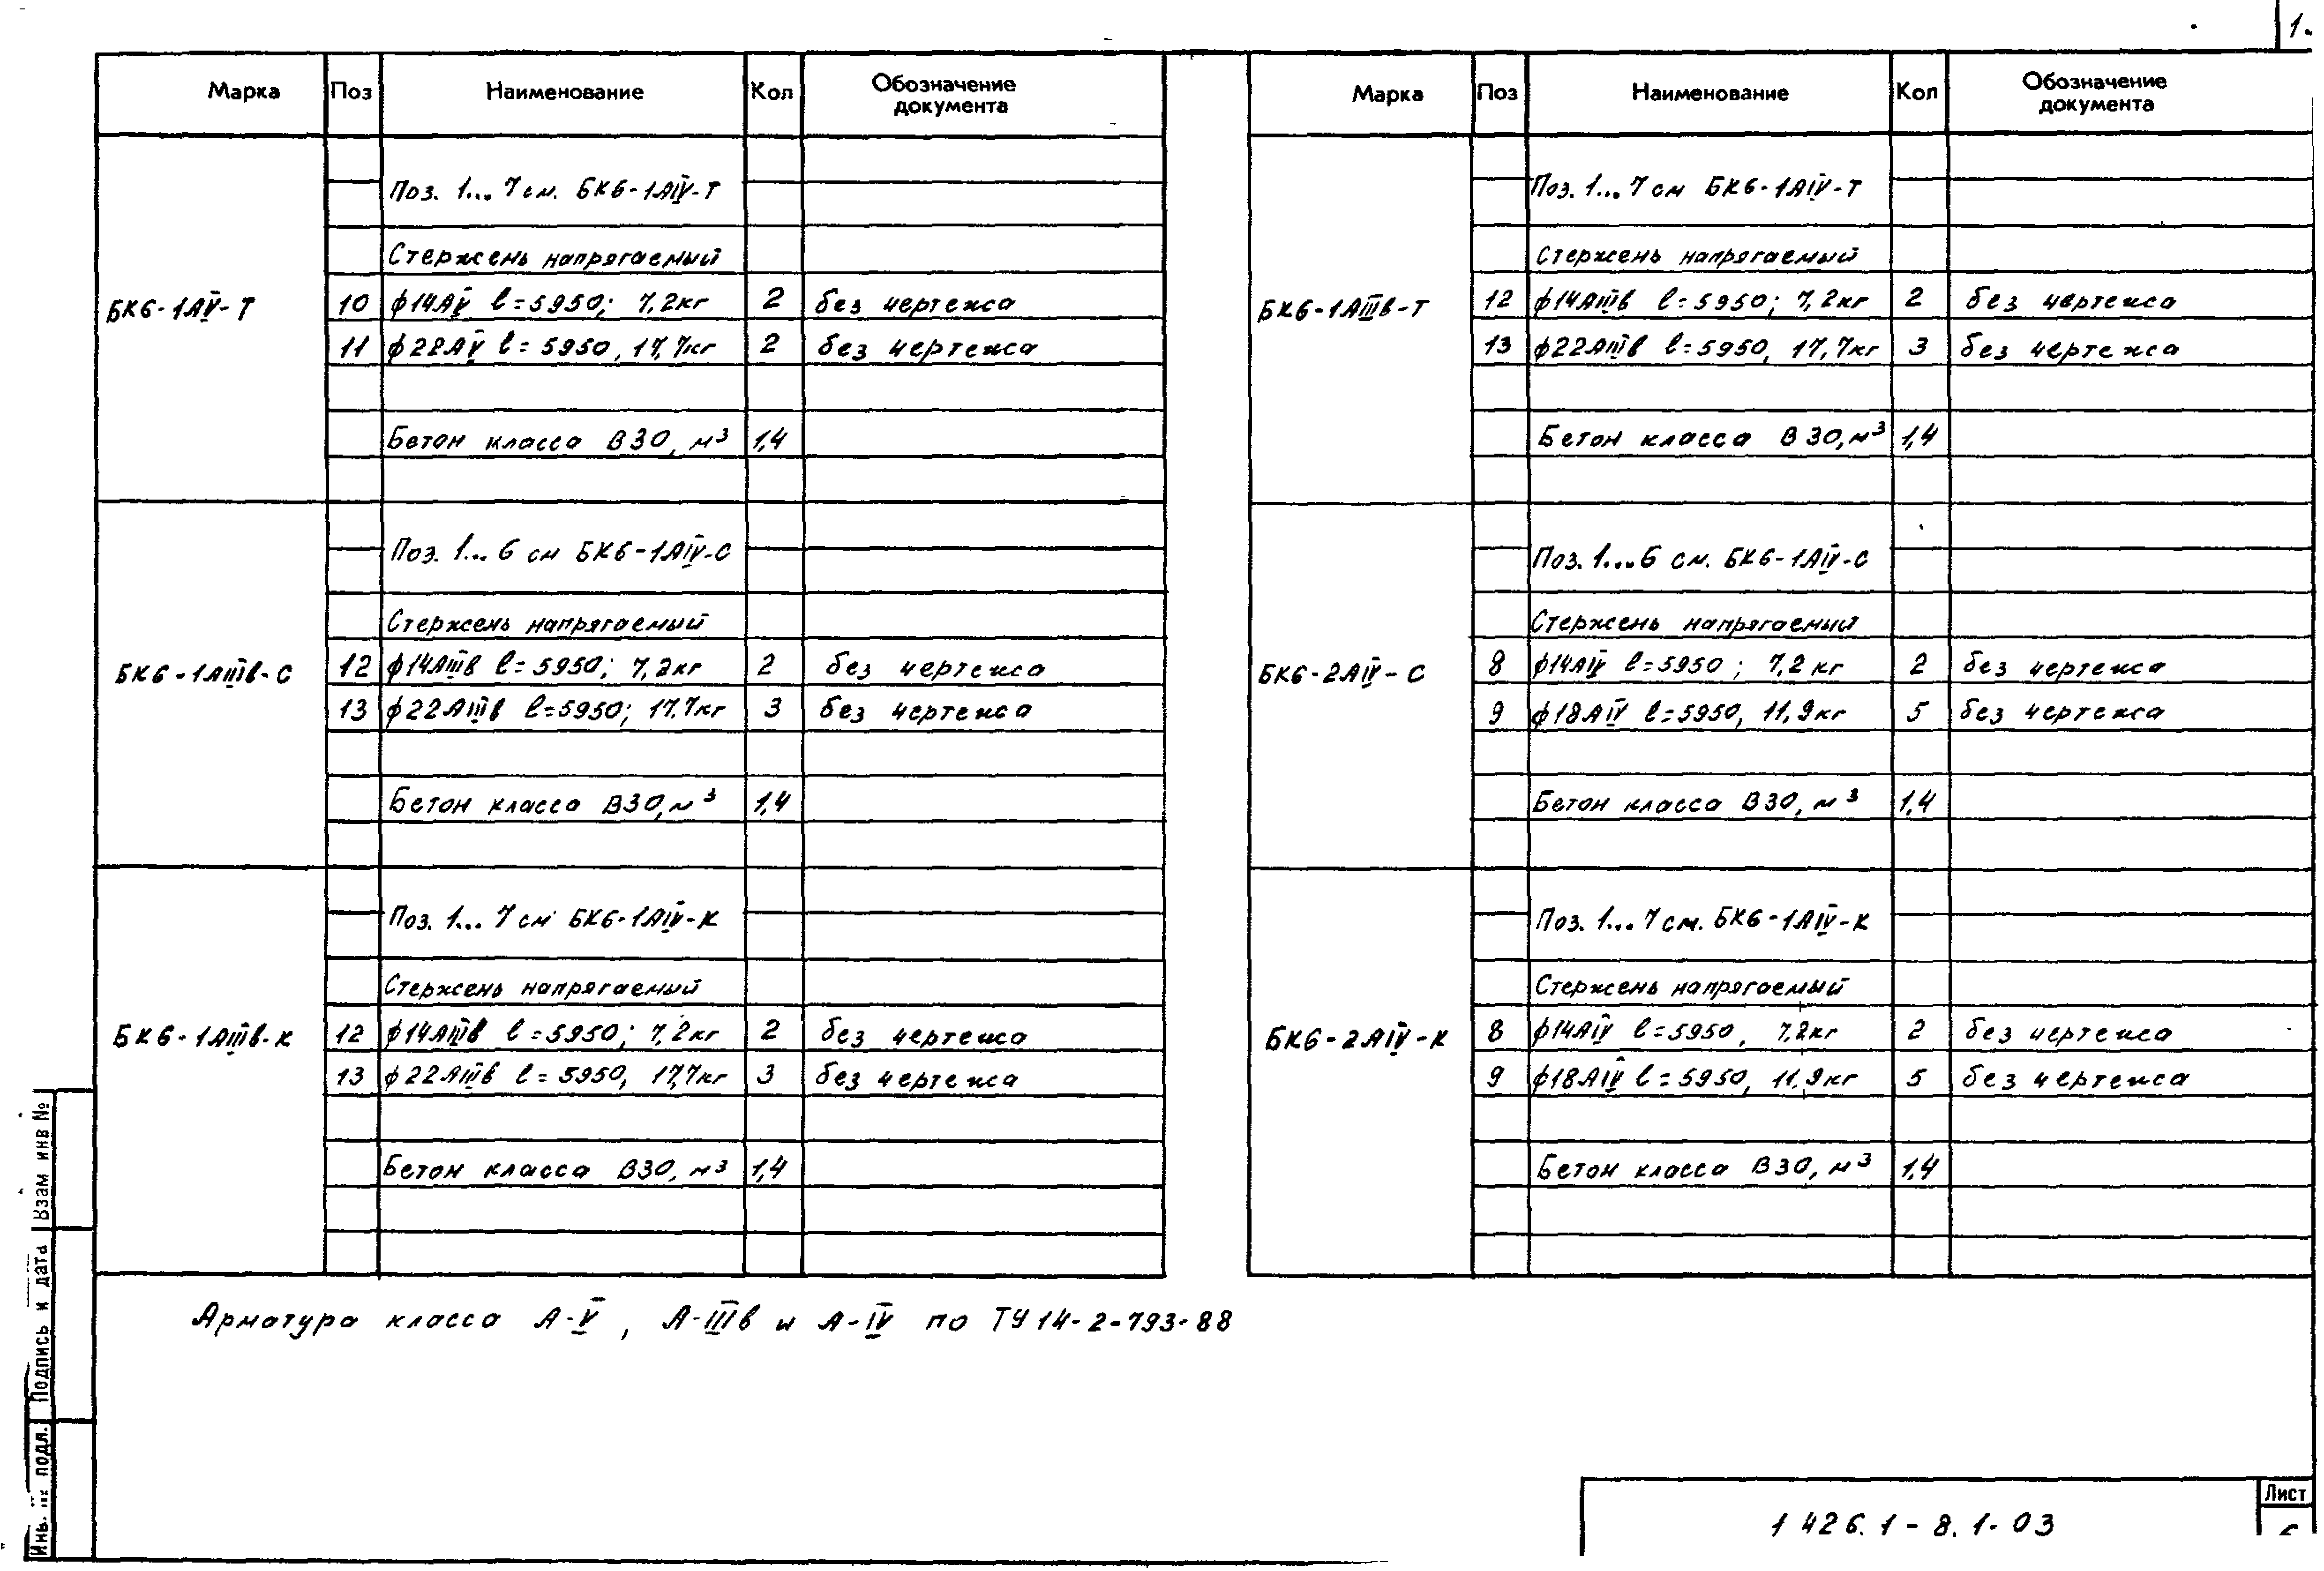 1.
Марка Поз Наименование Кол Обозначение документа
Поз. 1... 7 см. БК6-1АIV-Т
Стержень напрягаемый
БК6-1АV-Т
10 ϕ14АV l=5950; 7,2кг 2 без чертежа
11 ϕ22АV l=5950, 17,7кг 2 без чертежа
Бетон класса В30, м³ 1,4
Поз. 1... 6 см БК6-1АIV-С
Стержень напрягаемый
БК6-1АIIIв-С 12 ϕ14АIIIв l=5950; 7,2кг 2 без чертежа
13 ϕ22АIIIв l=5950; 17.7кг 3 без чертежа
Бетон класса В30, м³ 1,4
Поз. 1... 7 см БК6-1АIV-К
Стержень напрягаемый
БК6-1АIIIв-К 12 ϕ14АIIIв l=5950; 7,2кг 2 без чертежа
13 ϕ22АIIIв l=5950, 17,7кг 3 без чертежа
Бетон класса В30, м³ 1,4
Марка Поз Наименование Кол Обозначение документа
Поз. 1... 7 см БК6-1АIV-Т
Стержень напрягаемый
БК6-1АIIIв-Т 12 ϕ14АIIIв l=5950; 7,2кг 2 без чертежа
13 ϕ22АIIIв l=5950, 17,7кг 3 без чертежа
Бетон класса В30, м³ 1,4
Поз. 1...6 см. БК6-1АIV-С
Стержень напрягаемый
БК6-2АIV-С 8 ϕ14АIV l=5950; 7,2 кг 2 без чертежа
9 ϕ18АIV l=5950, 11,9кг 5 без чертежа
Бетон класса В30, м³ 1,4
Поз. 1...7 см. БК6-1АIV-К
Стержень напрягаемый
БК6-2АIV-К 8 ϕ14АIV l=5950, 7,2кг 2 без чертежа
9 ϕ18АIV l=5950, 11,9кг 5 без чертежа
Бетон класса В30, м³ 1,4
Арматура класса А-V, А-IIIв и А-IV по ТУ 14-2-793-88
Взам инв №
Подпись и дата
Инв. подл.
1 426.1-8.1-03
Лист